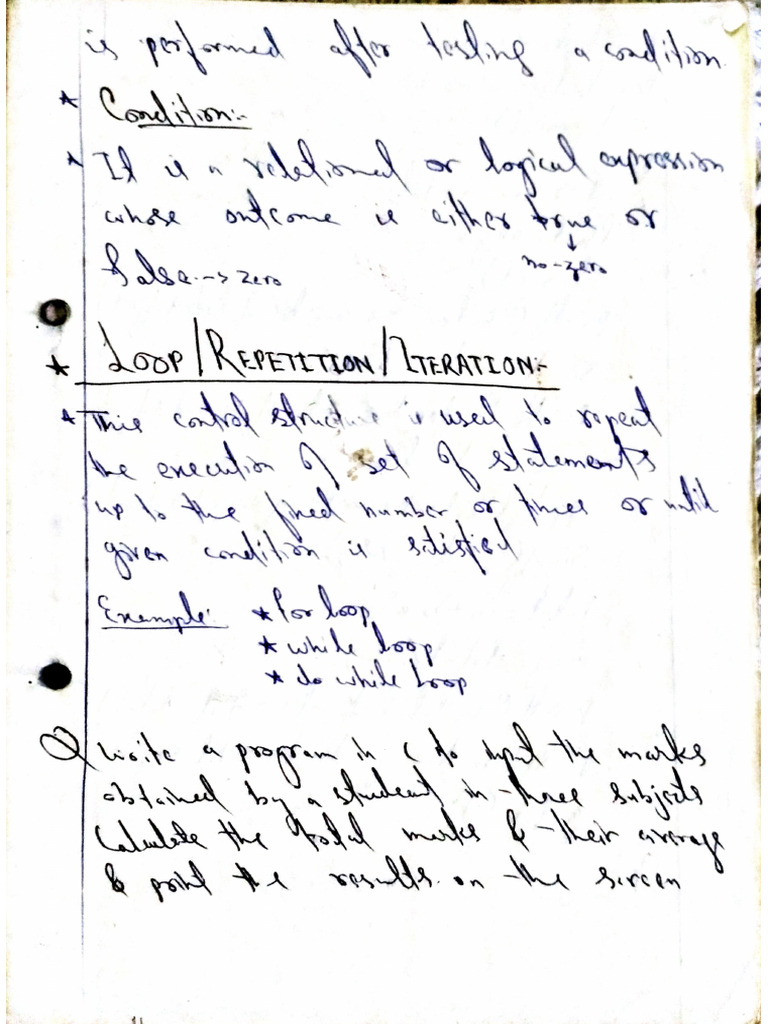 is performed after testing a condition.
* Condition:-
* It is a relational or logical expression
whose outcome is either true or
↓
no-zero
false --> zero
* LOOP/REPETITION/ITERATION:-
* This control structure is used to repeat
the execution of set of statements
up to the fixed number or times or until
given condition is satisfied
Example: * for loop
* while loop
* do while loop
Q write a program in C to input the marks
obtained by a student in three subjects
Calculate the total marks & their average
& print the results on the screen